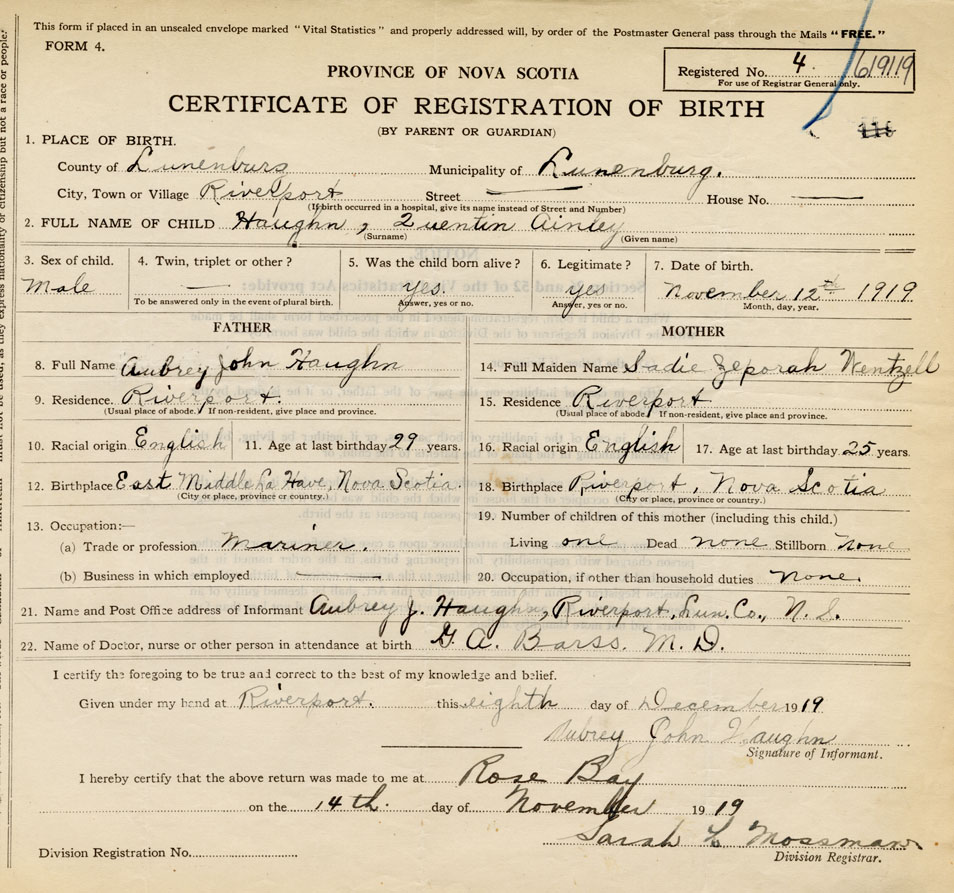 This form if placed in an unsealed envelope marked "Vital Statistics" and properly addressed will, by order of the Postmaster General pass through the Mails "FREE."
FORM 4.
Registered No. 4 61919
For use of Registrar General only.
PROVINCE OF NOVA SCOTIA
CERTIFICATE OF REGISTRATION OF BIRTH
(BY PARENT OR GUARDIAN)
1. PLACE OF BIRTH.
County of Lunenburg Municipality of Lunenburg.
City, Town or Village Riverport Street House No.
(If birth occurred in a hospital, give its name instead of Street and Number)
2. FULL NAME OF CHILD Haughn, Quentin Ainley
(Surname) (Given name)
3. Sex of child. 4. Twin, triplet or other? 5. Was the child born alive? 6. Legitimate? 7. Date of birth.
Male — yes. yes November 12th 1919
To be answered only in the event of plural birth. Answer, yes or no. Answer, yes or no. Month, day, year.
FATHER MOTHER
8. Full Name Aubrey John Haughn 14. Full Maiden Name Sadie Zeporah Wentzell
9. Residence. Riverport. 15. Residence Riverport
(Usual place of abode. If non-resident, give place and province. (Usual place of abode. If non-resident, give place and province.
10. Racial origin English 11. Age at last birthday 29 years. 16. Racial origin English 17. Age at last birthday 25 years.
12. Birthplace East Middle La Have, Nova Scotia. 18. Birthplace Riverport, Nova Scotia
(City or place, province or country.) (City or place, province or country.)
13. Occupation:— 19. Number of children of this mother (including this child.)
(a) Trade or profession Mariner. Living one Dead none Stillborn none
(b) Business in which employed 20. Occupation, if other than household duties None.
21. Name and Post Office address of Informant Aubrey J. Haughn, Riverport, Lun. Co., N. S.
22. Name of Doctor, nurse or other person in attendance at birth G. A. Barss. M. D.
I certify the foregoing to be true and correct to the best of my knowledge and belief.
Given under my hand at Riverport. this eighth day of December 1919
Aubrey John Haughn
Signature of Informant.
I hereby certify that the above return was made to me at Rose Bay
on the 14th. day of November 1919
Sarah Mossman
Division Registration No. Division Registrar.